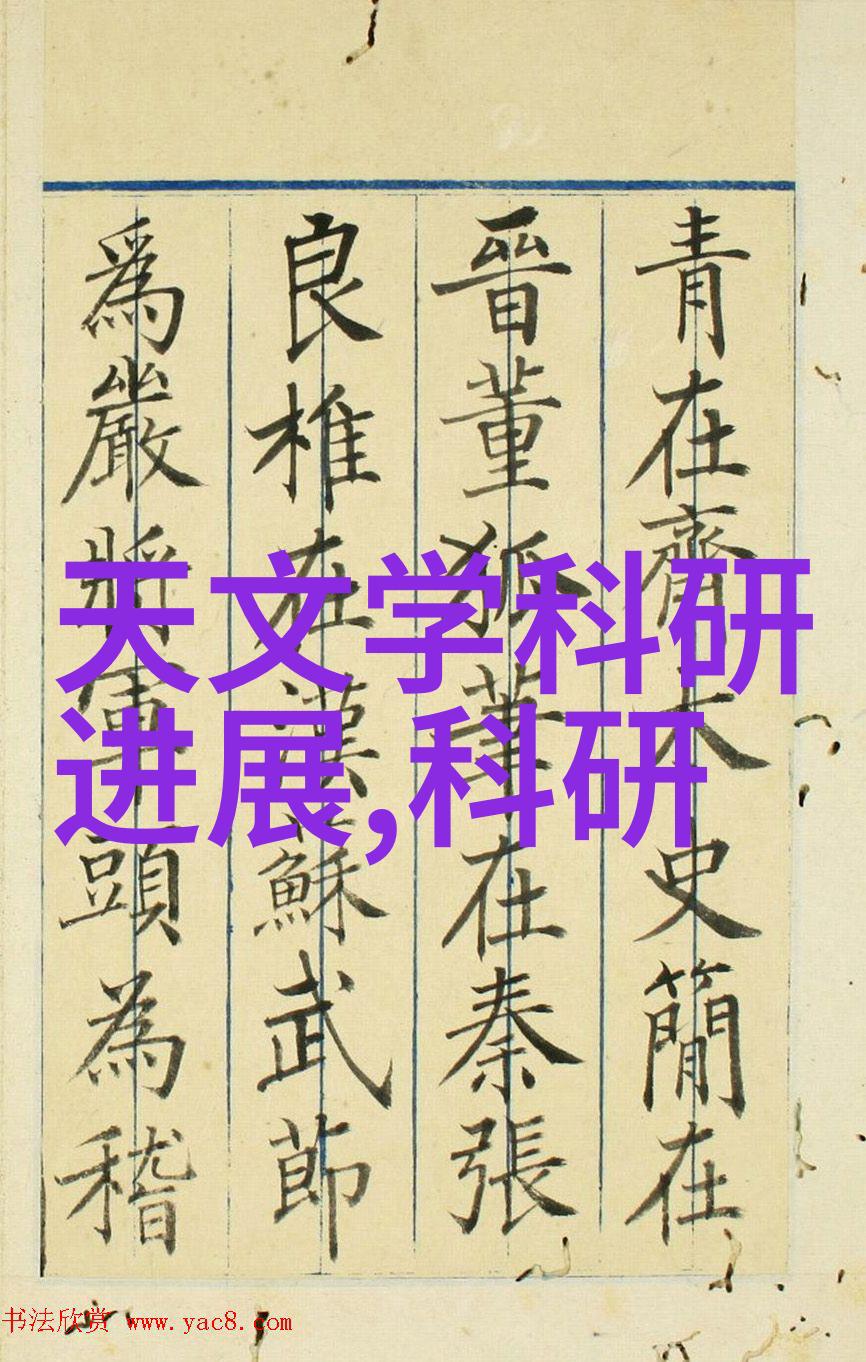 青在齊太史簡在
晉董狐筆在秦張
良椎在漢蘇武節
爲嚴將軍頭為稽
天文学科研
进展,科研
书法欣赏 www.yac8.com